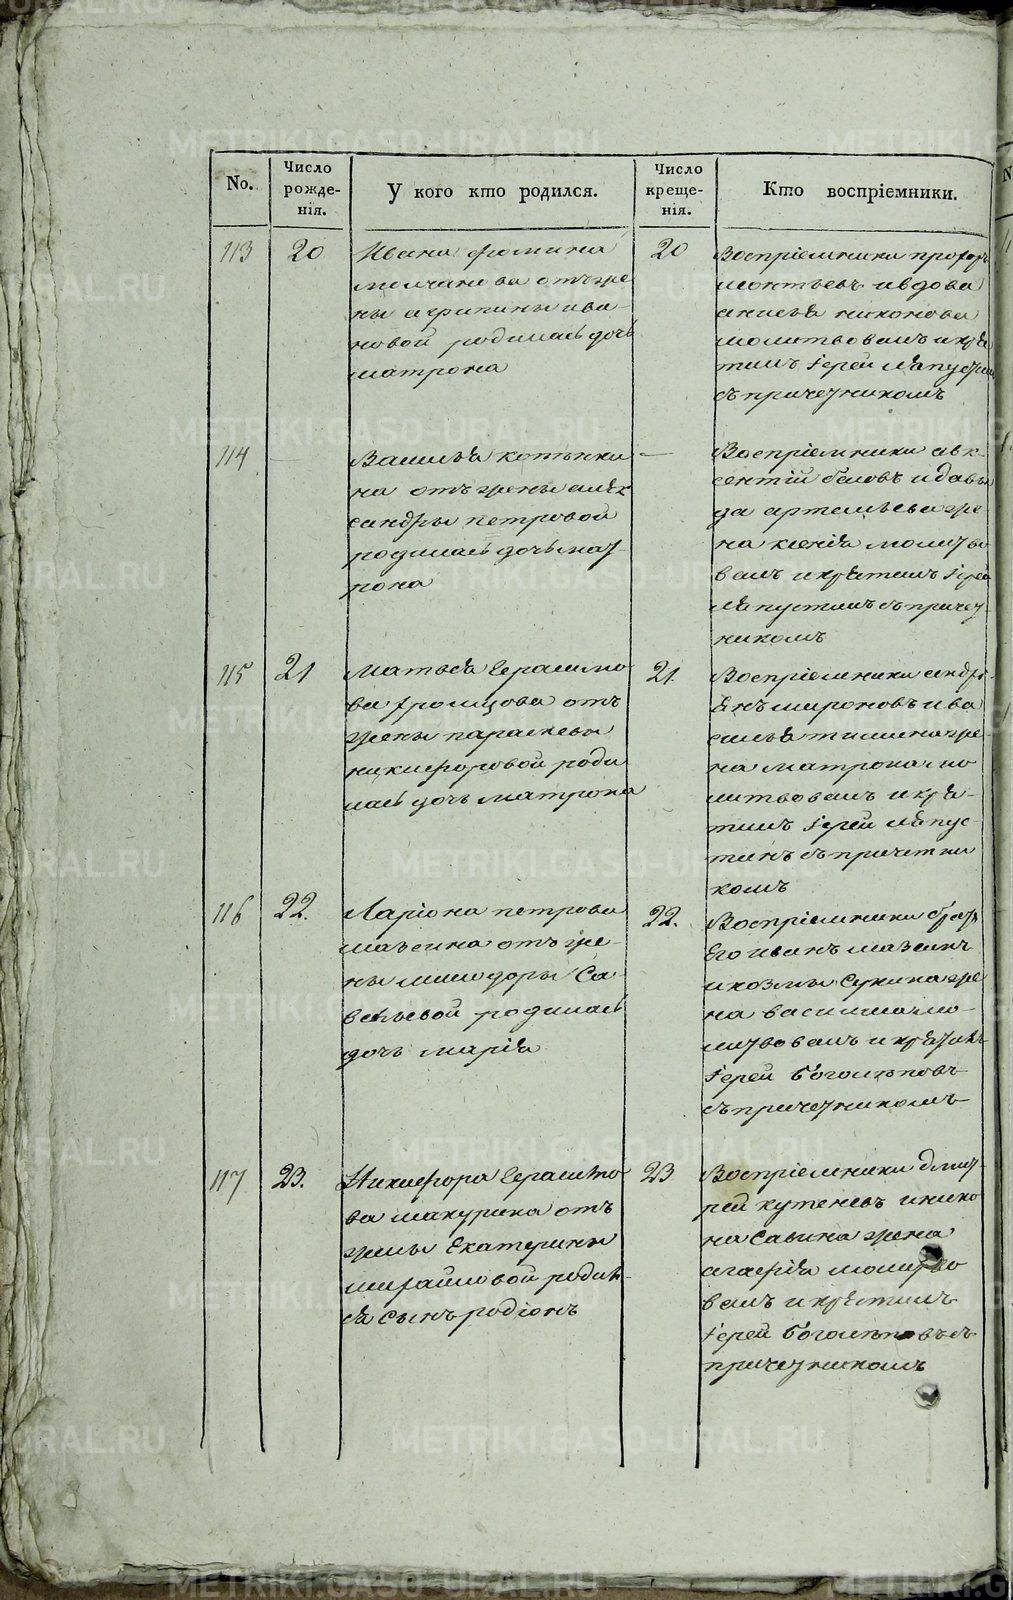 No.
Число рожденія.
У кого кто родился.
Число крещенія.
Кто воспріемники.
113
20
Ивана Фомина
молчанова отъ же
ны агрипины ива
новой родилась дочь
матрона
20
Воспріемники
леонтьевъ и вдова
анисья никонова
молитвовалъ и кре
тилъ Іерей Лепустин
съ причетникомъ
114
Василья
на отъ жены алек
сандры петровой
родилась дочь мат
рона
Воспріемники авк
сентій беловъ и давы
да артемьева же
на ксенія молитво
валъ и крѣтилъ Іерей
Лепустинъ съ причет
никомъ
115
21
Матвея Герасимо
ва отъ
жены параскевы
никифоровой роди
лась дочь матрона
21.
Воспріемники андре
янъ мироновъ и ва
силья тимина же
на матрона мо
литвовалъ и кре
тилъ Іерей Лепус
тинъ съ причетни
комъ
116
22.
Ларіона петрова
мазеина отъ же
ны мелидоры Са
вельевой родилась
дочь марія
22.
Воспріемники братъ
Его иванъ мазеинъ
и козмы Сукина же
на василиса мо
литвовалъ и кретилъ
Іерей Боголеповъ
съ причетникомъ
117
23.
Никифора Герасимо
ва макурина отъ
жены Екатерины
михайловой родил
ся Сынъ родіонъ
23
Воспріемники дмит
рей кутеневъ и нико
на Савина жена
агафія молитво
валъ и кретилъ
Іерей Боголеповъ съ
причетникомъ
METRIKI.GASO-URAL.RU